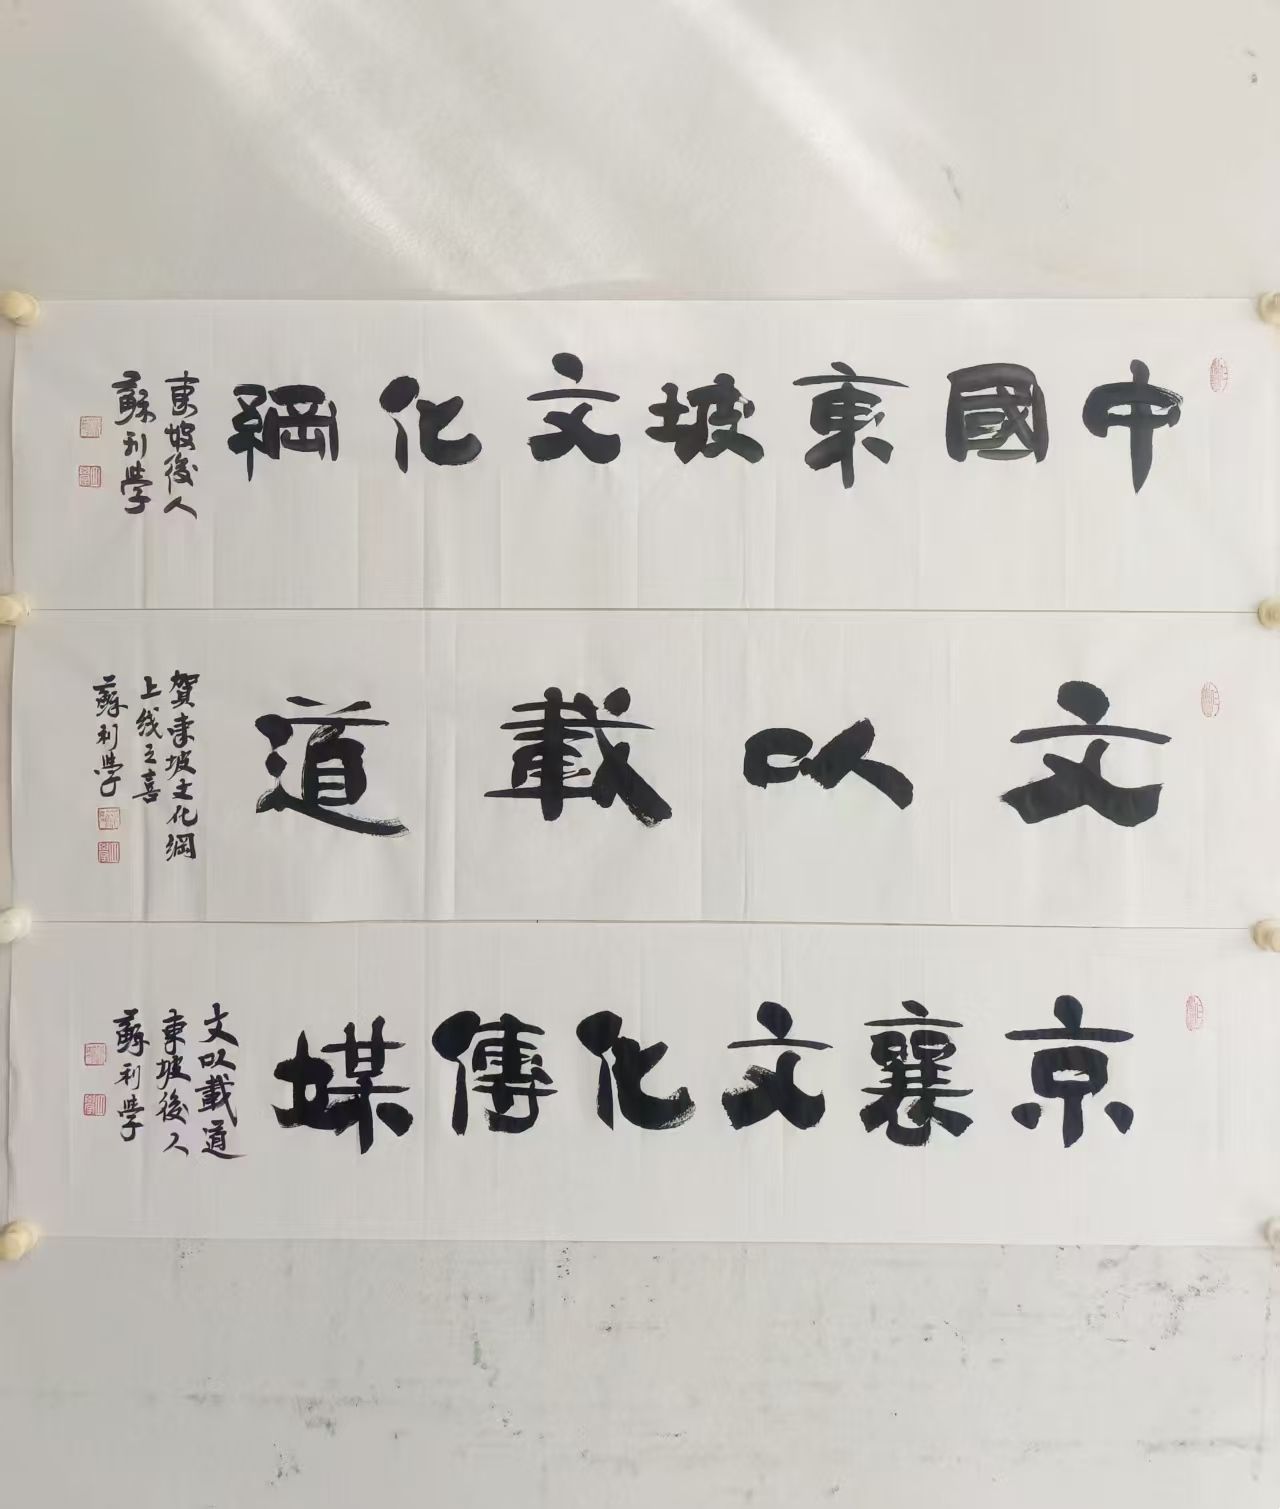 中國東坡文化綱
東坡後人
蘇利學
文以載道
賀東坡文化綱
上线之喜
蘇利學
京襄文化傳媒
文以載道
東坡後人
蘇利學